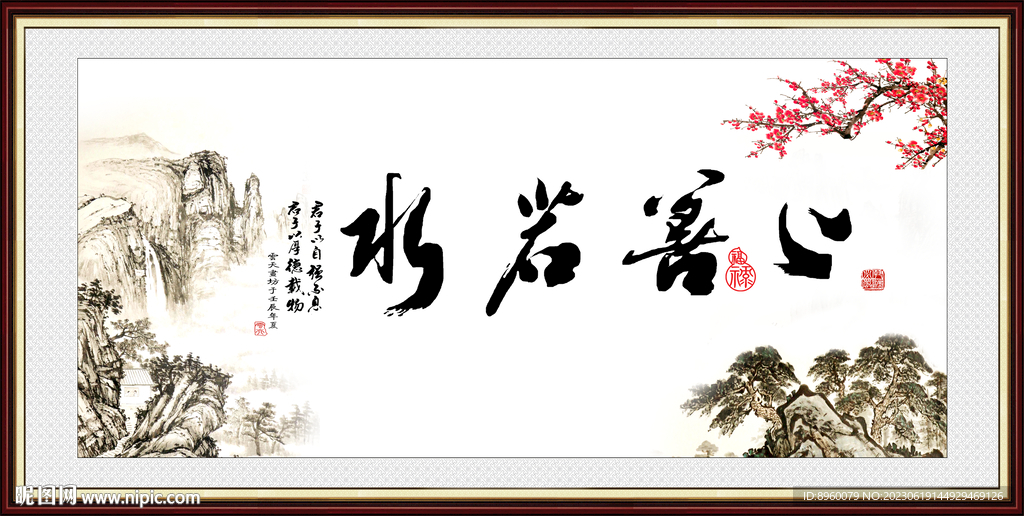 上善若水
君子以自强不息
君子以厚德载物
云天书坊于壬辰年夏
福禄
昵图网 www.nipic.com
ID:8960079 NO:20230619144929469126